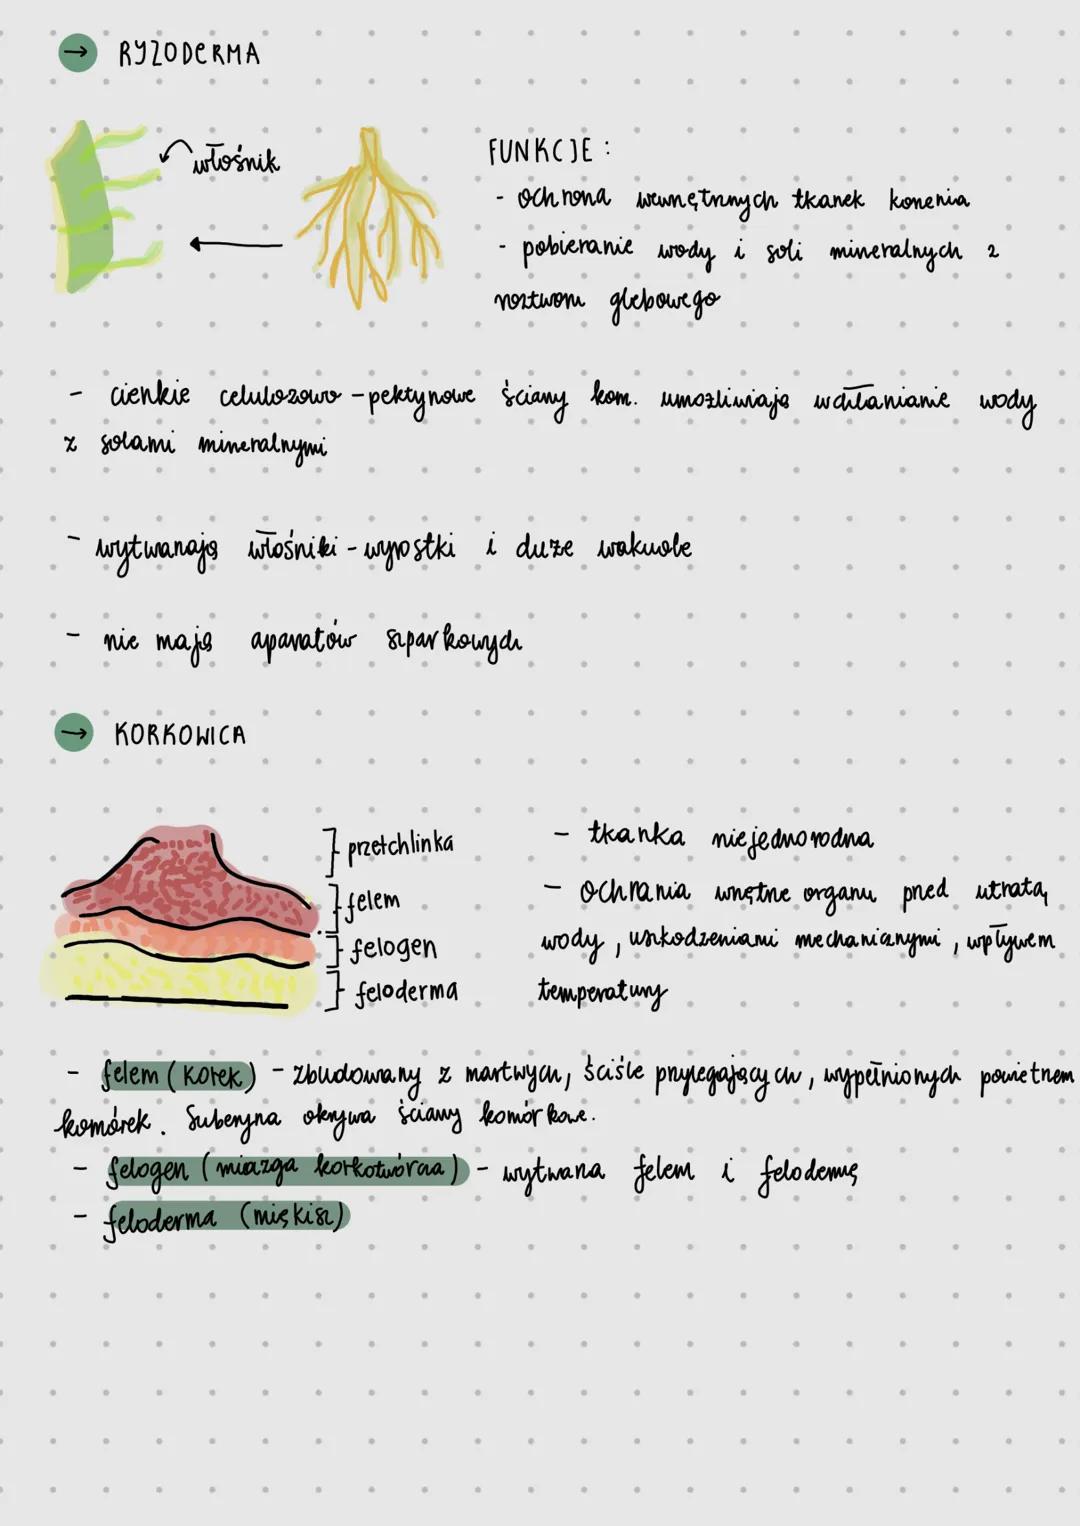 → RYZODERMA
włośnik
FUNKCJE:
- ochrona wewnętrznych tkanek korzenia
- pobieranie wody i soli mineralnych z
roztworu glebowego
- cienkie celulozowo-pektynowe ściany kom. umożliwiają wchłanianie wody
z solami mineralnymi
- wytwarzają włośniki - wyrostki i duże wakuole
- nie mają aparatów szparkowych
→ KORKOWICA
przetchlinka
felem
felogen
feloderma
- tkanka niejednorodna
- ochrania wnętrze organu przed utratą
wody, uszkodzeniami mechanicznymi, wpływem
temperatury
- felem (korek) - zbudowany z martwych, ściśle przylegających, wypełnionych powietrzem
komórek. Suberyna okrywa ściany komórkowe.
- felogen (miazga korkotwórcza) - wytwarza felem i felodermę
- feloderma (miękisz)